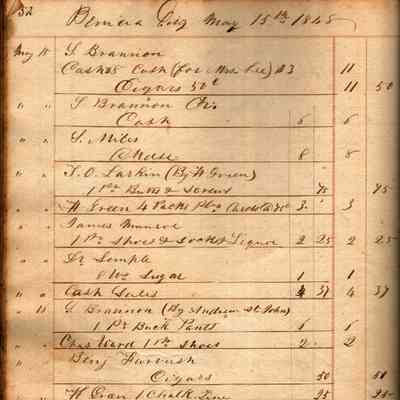 52 Benicia City May 15th 1848
May 15 S Brannon
Cash Cash (for Mrs Lee) $3 11
Cigars 50c 11 50
" " S Brannon Cr.
Cash 6 6
" " S. Miles
8 8
" " T.O. Larkin (By W Green)
1 Pr Butts & Screws 75 75
" " W Green 4 Packs 3. 3
" " James Munroe
1 Pr Shoes & Socks & Liquor 2 25 2 25
" " Dr Semple
8 lbs Sugar 1 1
" " Cash Sales 4 37 4 37
" 18 S Brannon (By Andrew St John)
1 Pr Buck Pants 6 6
" " Chas Ward 1 Pr Shoes 2 2
" " Benj
Cigars 50 50
" " 1 Chalk Line 25 25